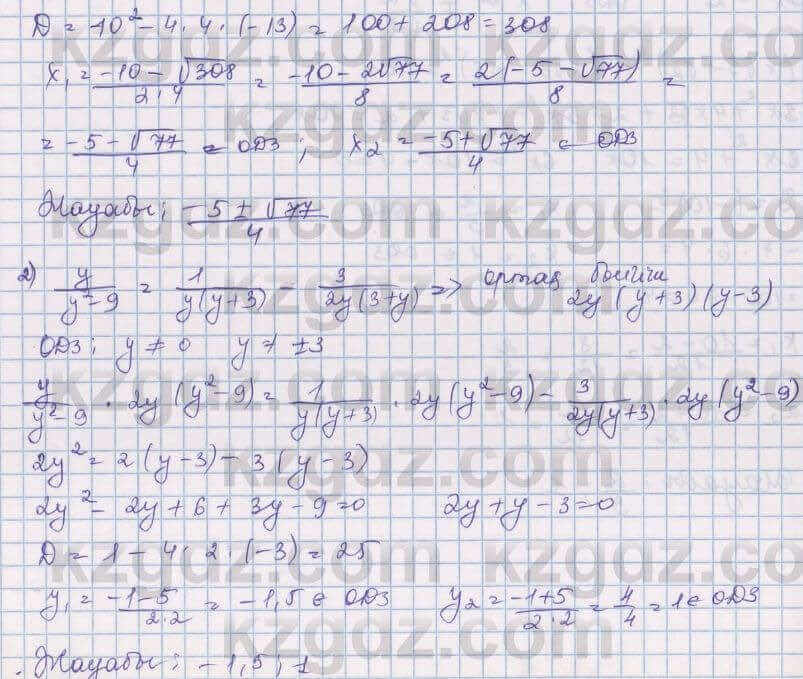 D = 10² - 4 · 4 · (-13) = 100 + 208 = 308
x₁ = (-10 - √308)/(2 · 4) = (-10 - 2√77)/8 = (2(-5 - √77))/8 =
= (-5 - √77)/4 ∈ ОДЗ ; x₂ = (-5 + √77)/4 ∈ ОДЗ
Жауабы: (-5 ± √77)/4
2) y/(y² - 9) = 1/(y(y+3)) - 3/(2y(3+y)) => ортақ бөлгіш 2y(y+3)(y-3)
ОДЗ: y ≠ 0 y ≠ ±3
y/(y² - 9) · 2y(y² - 9) = 1/(y(y+3)) · 2y(y² - 9) - 3/(2y(y+3)) · 2y(y² - 9)
2y² = 2(y - 3) - 3(y - 3)
2y² - 2y + 6 + 3y - 9 = 0 2y + y - 3 = 0
D = 1 - 4 · 2 · (-3) = 25
y₁ = (-1 - 5)/(2 · 2) = -1,5 ∈ ОДЗ y₂ = (-1 + 5)/(2 · 2) = 4/4 = 1 ∈ ОДЗ
Жауабы: -1,5 ; 1
kzgdz.com